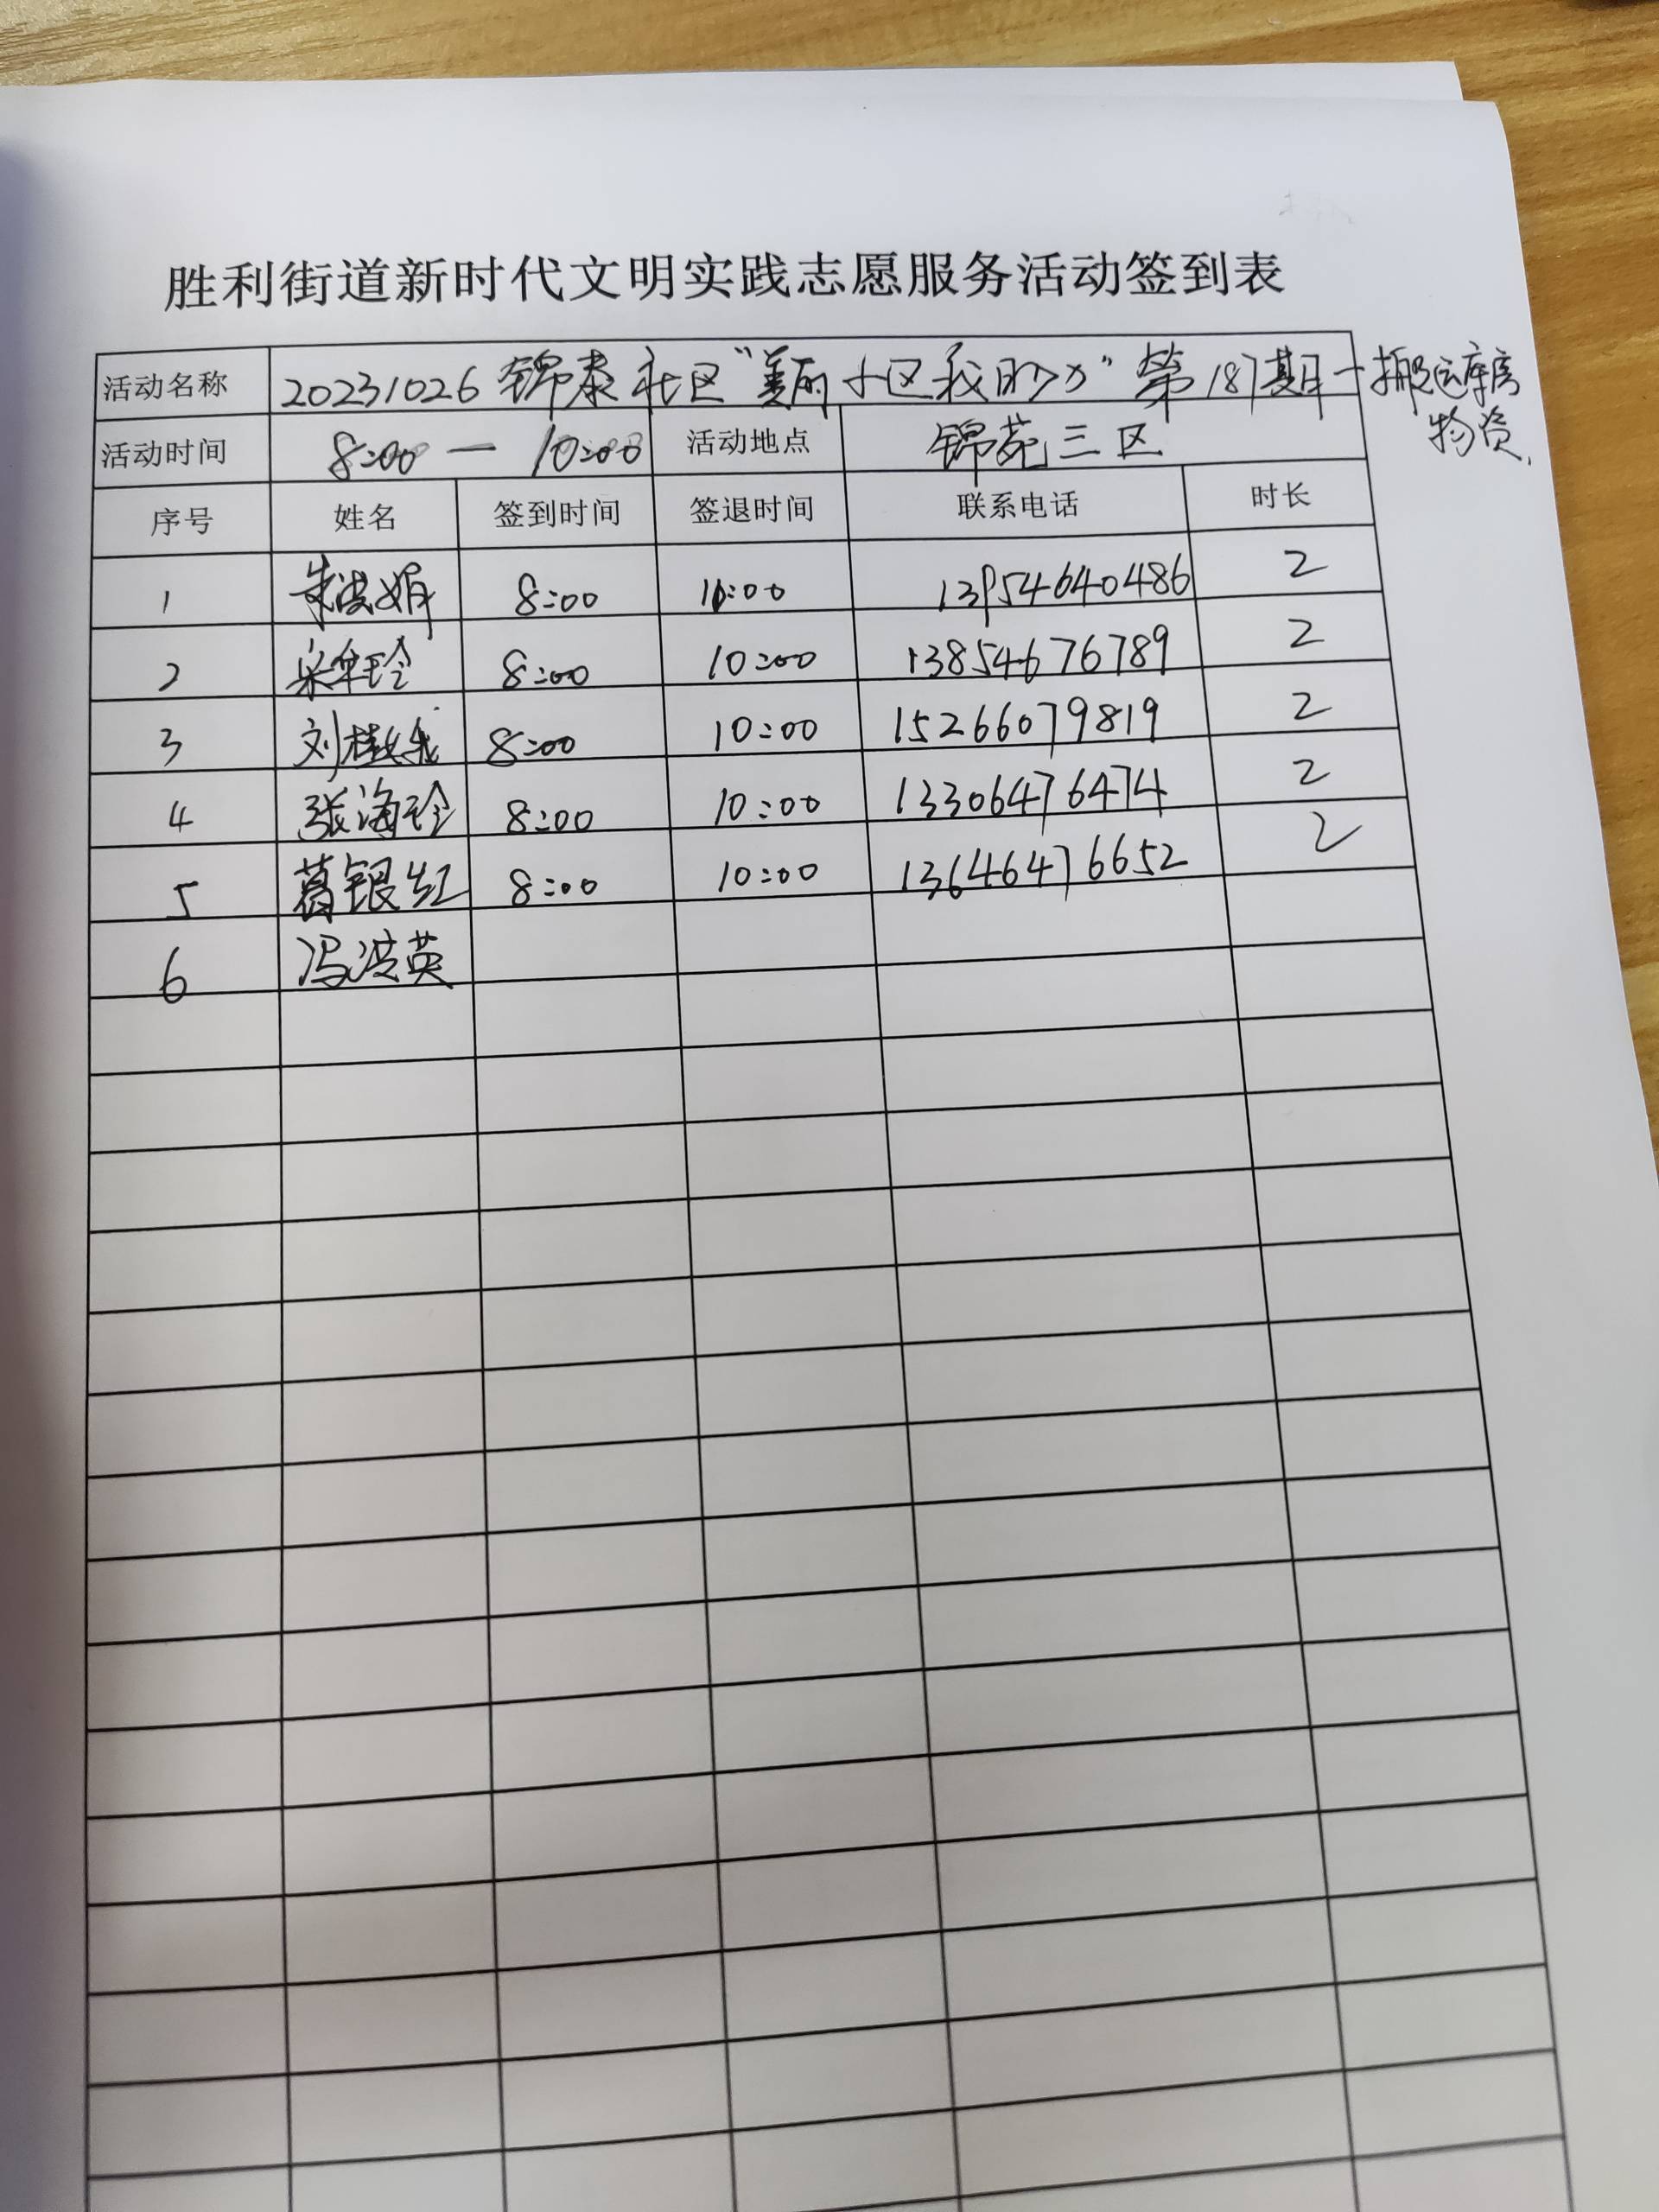 胜利街道新时代文明实践志愿服务活动签到表
活动名称 20231026 锦泰社区“美丽小区我的家”第187期—搬运库房
物资.
活动时间 8:00 — 10:00 活动地点 锦苑三区
序号 姓名 签到时间 签退时间 联系电话 时长
1 8:00 10:00 13954640486 2
2 8:00 10:00 13854676789 2
3 刘 8:00 10:00 15266079819 2
4 张海玲 8:00 10:00 13306476474 2
5 葛银红 8:00 10:00 13646476652 2
6 冯洪英